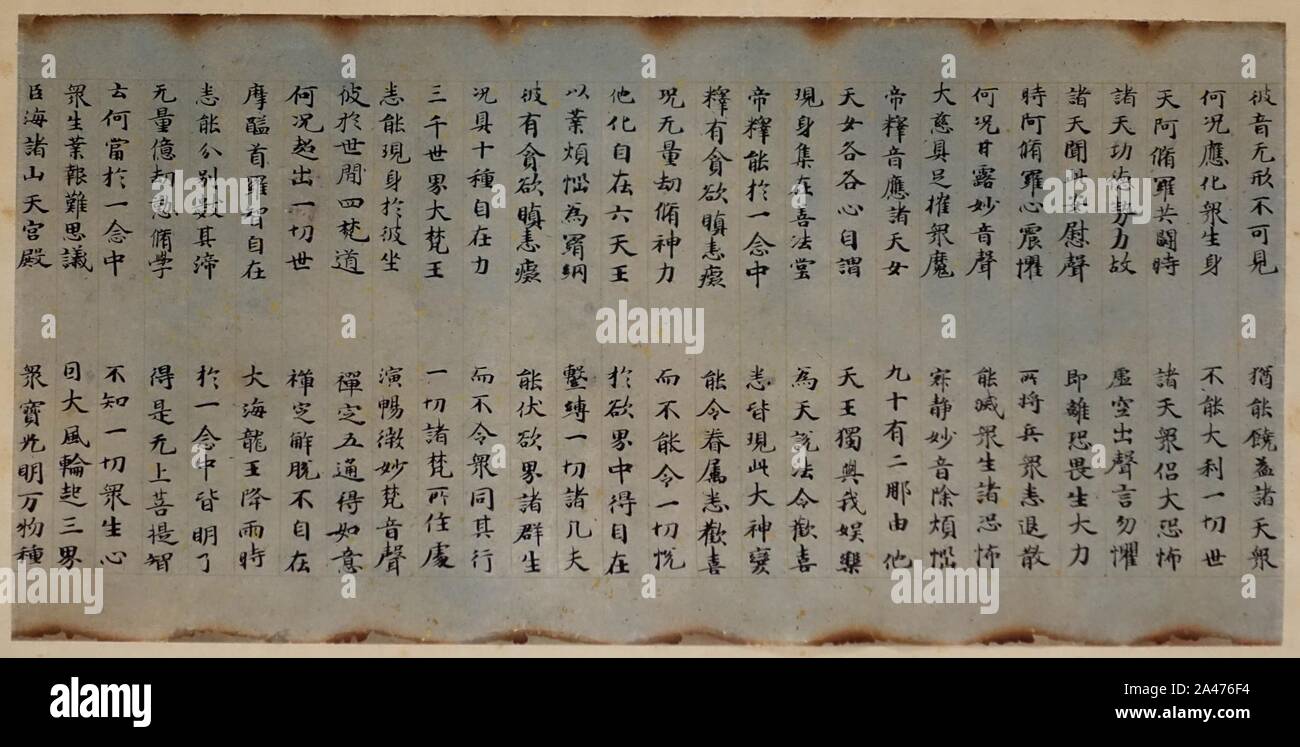 彼音无形不可見 猶能饒益諸天衆
何况應化衆生身 不能大利一切世
天阿脩羅共闘時 諸天衆侶大恐怖
諸天功徳勢力故 虚空出聲言勿懼
諸天聞此安慰聲 即離恐畏生大力
時阿脩羅心震懼 所将兵衆悉退散
何况甘露妙音聲 能滅衆生諸恐怖
大慈具足摧衆魔 寂静妙音除煩惱
帝釋音應諸天女 九十有二那由他
天女各各心自謂 天王獨與我娱樂
現身集在善法堂 為天説法令歡喜
帝釋能於一念中 悉皆現此大神變
釋有貪欲瞋恚癡 能令眷属悉歡喜
况无量劫脩神力 而不能令一切悦
他化自在六天王 於欲界中得自在
以業煩惱為羂網 繫縛一切諸凡夫
彼有貪欲瞋恚癡 能伏欲界諸群生
况具十種自在力 而不令衆同其行
三千世界大梵王 一切諸梵所住處
悉能現身於彼坐 演暢微妙梵音聲
彼於世間四梵道 禪定五通得如意
何况超出一切世 禪定解脱不自在
摩醯首羅智自在 大海龍王降雨時
悉能分別數其渧 於一念中皆明了
无量億劫懃脩學 得是无上菩提智
云何當於一念中 不知一切衆生心
衆生業報難思議 因大風輪起三界
巨海諸山天宮殿 衆寶光明万物種
alamy
alamy
Image ID: 2A476F4
www.alamy.com